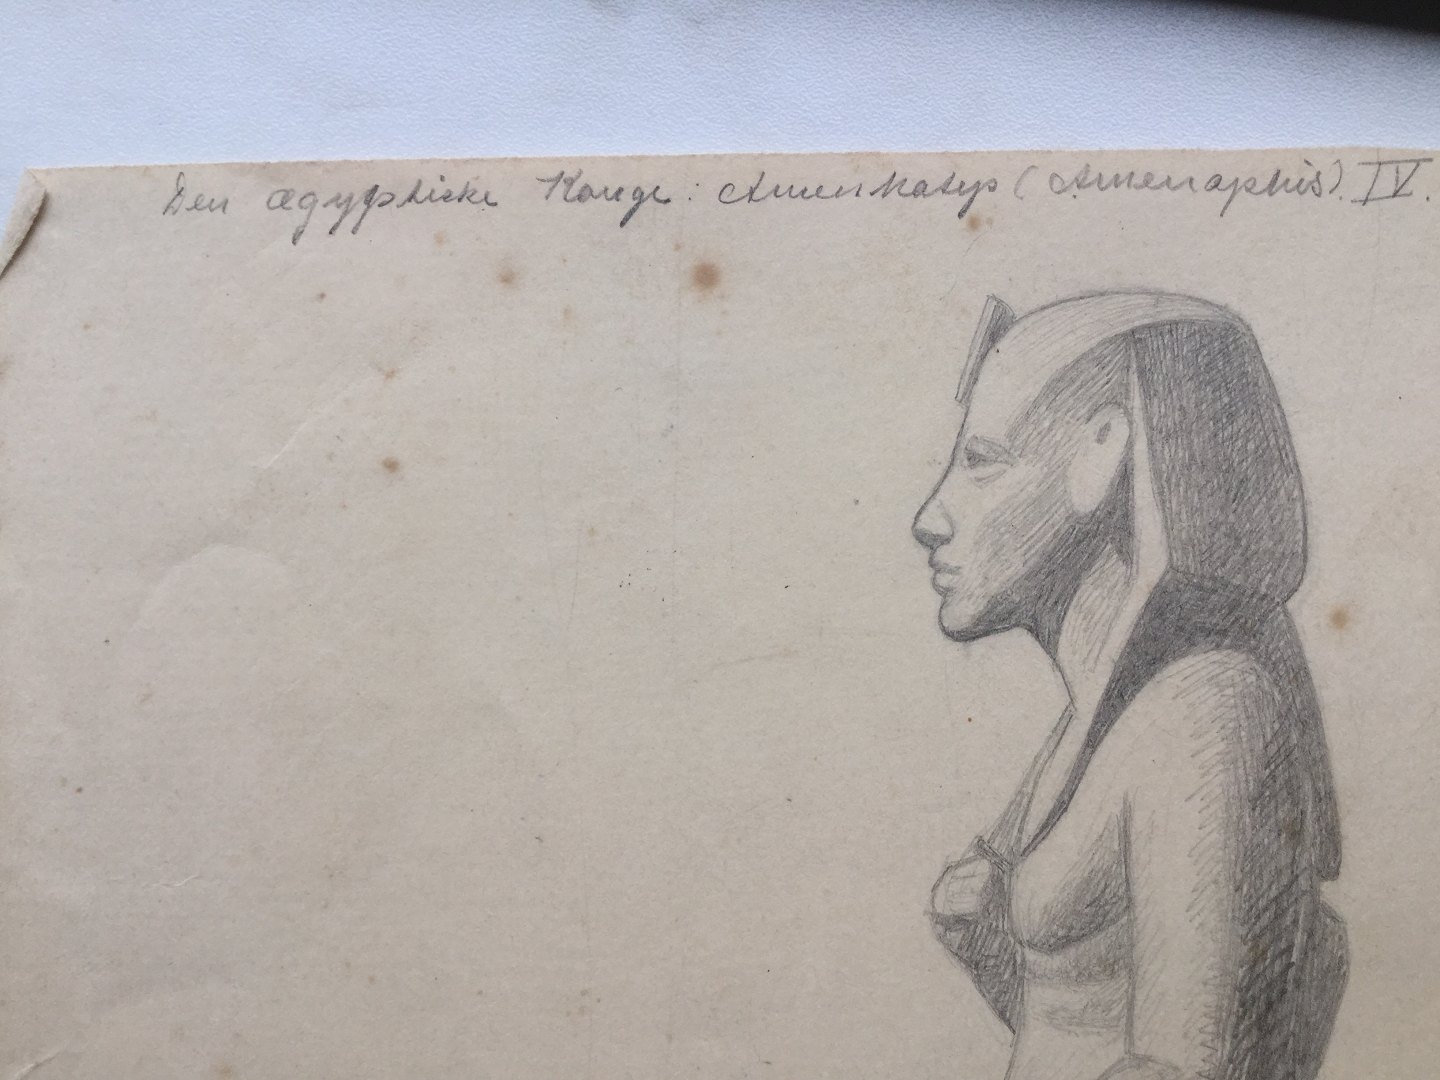 Den ægyptiske Konge: Amenhatys (Amenaphis) IV.